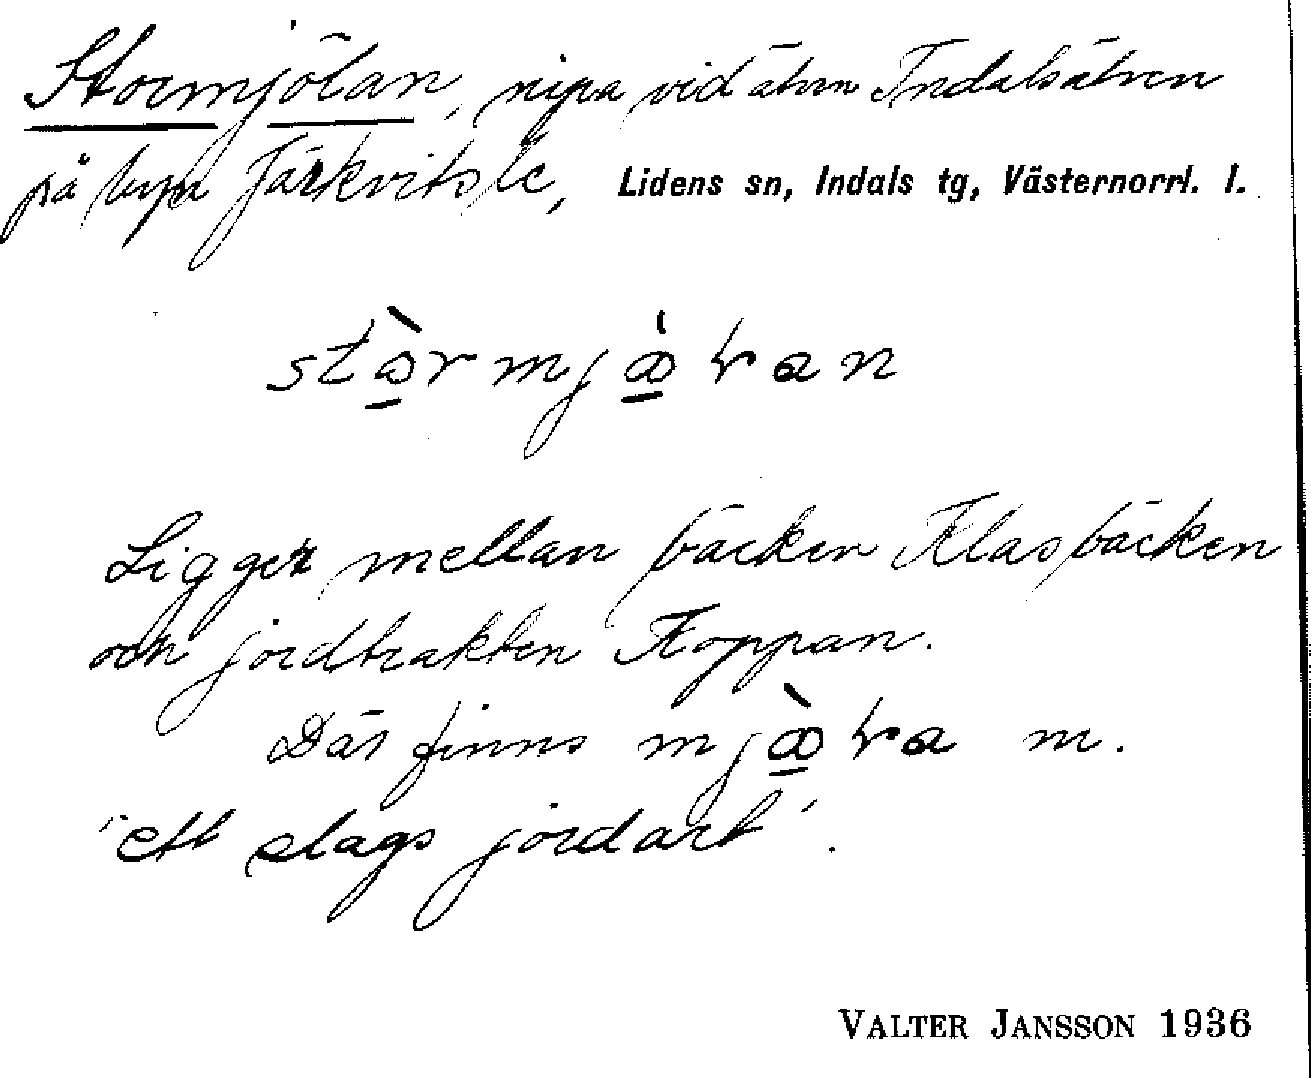 Stormjölan, nipa vid älven Indalsälven
på byn Järkvitsle, Lidens sn, Indals tg, Västernorrl. l.
Ligger mellan bäcken Klasbäcken
och jordtrakten Koppan.
Där finns m.
'ett slags jordart'.
VALTER JANSSON 1936